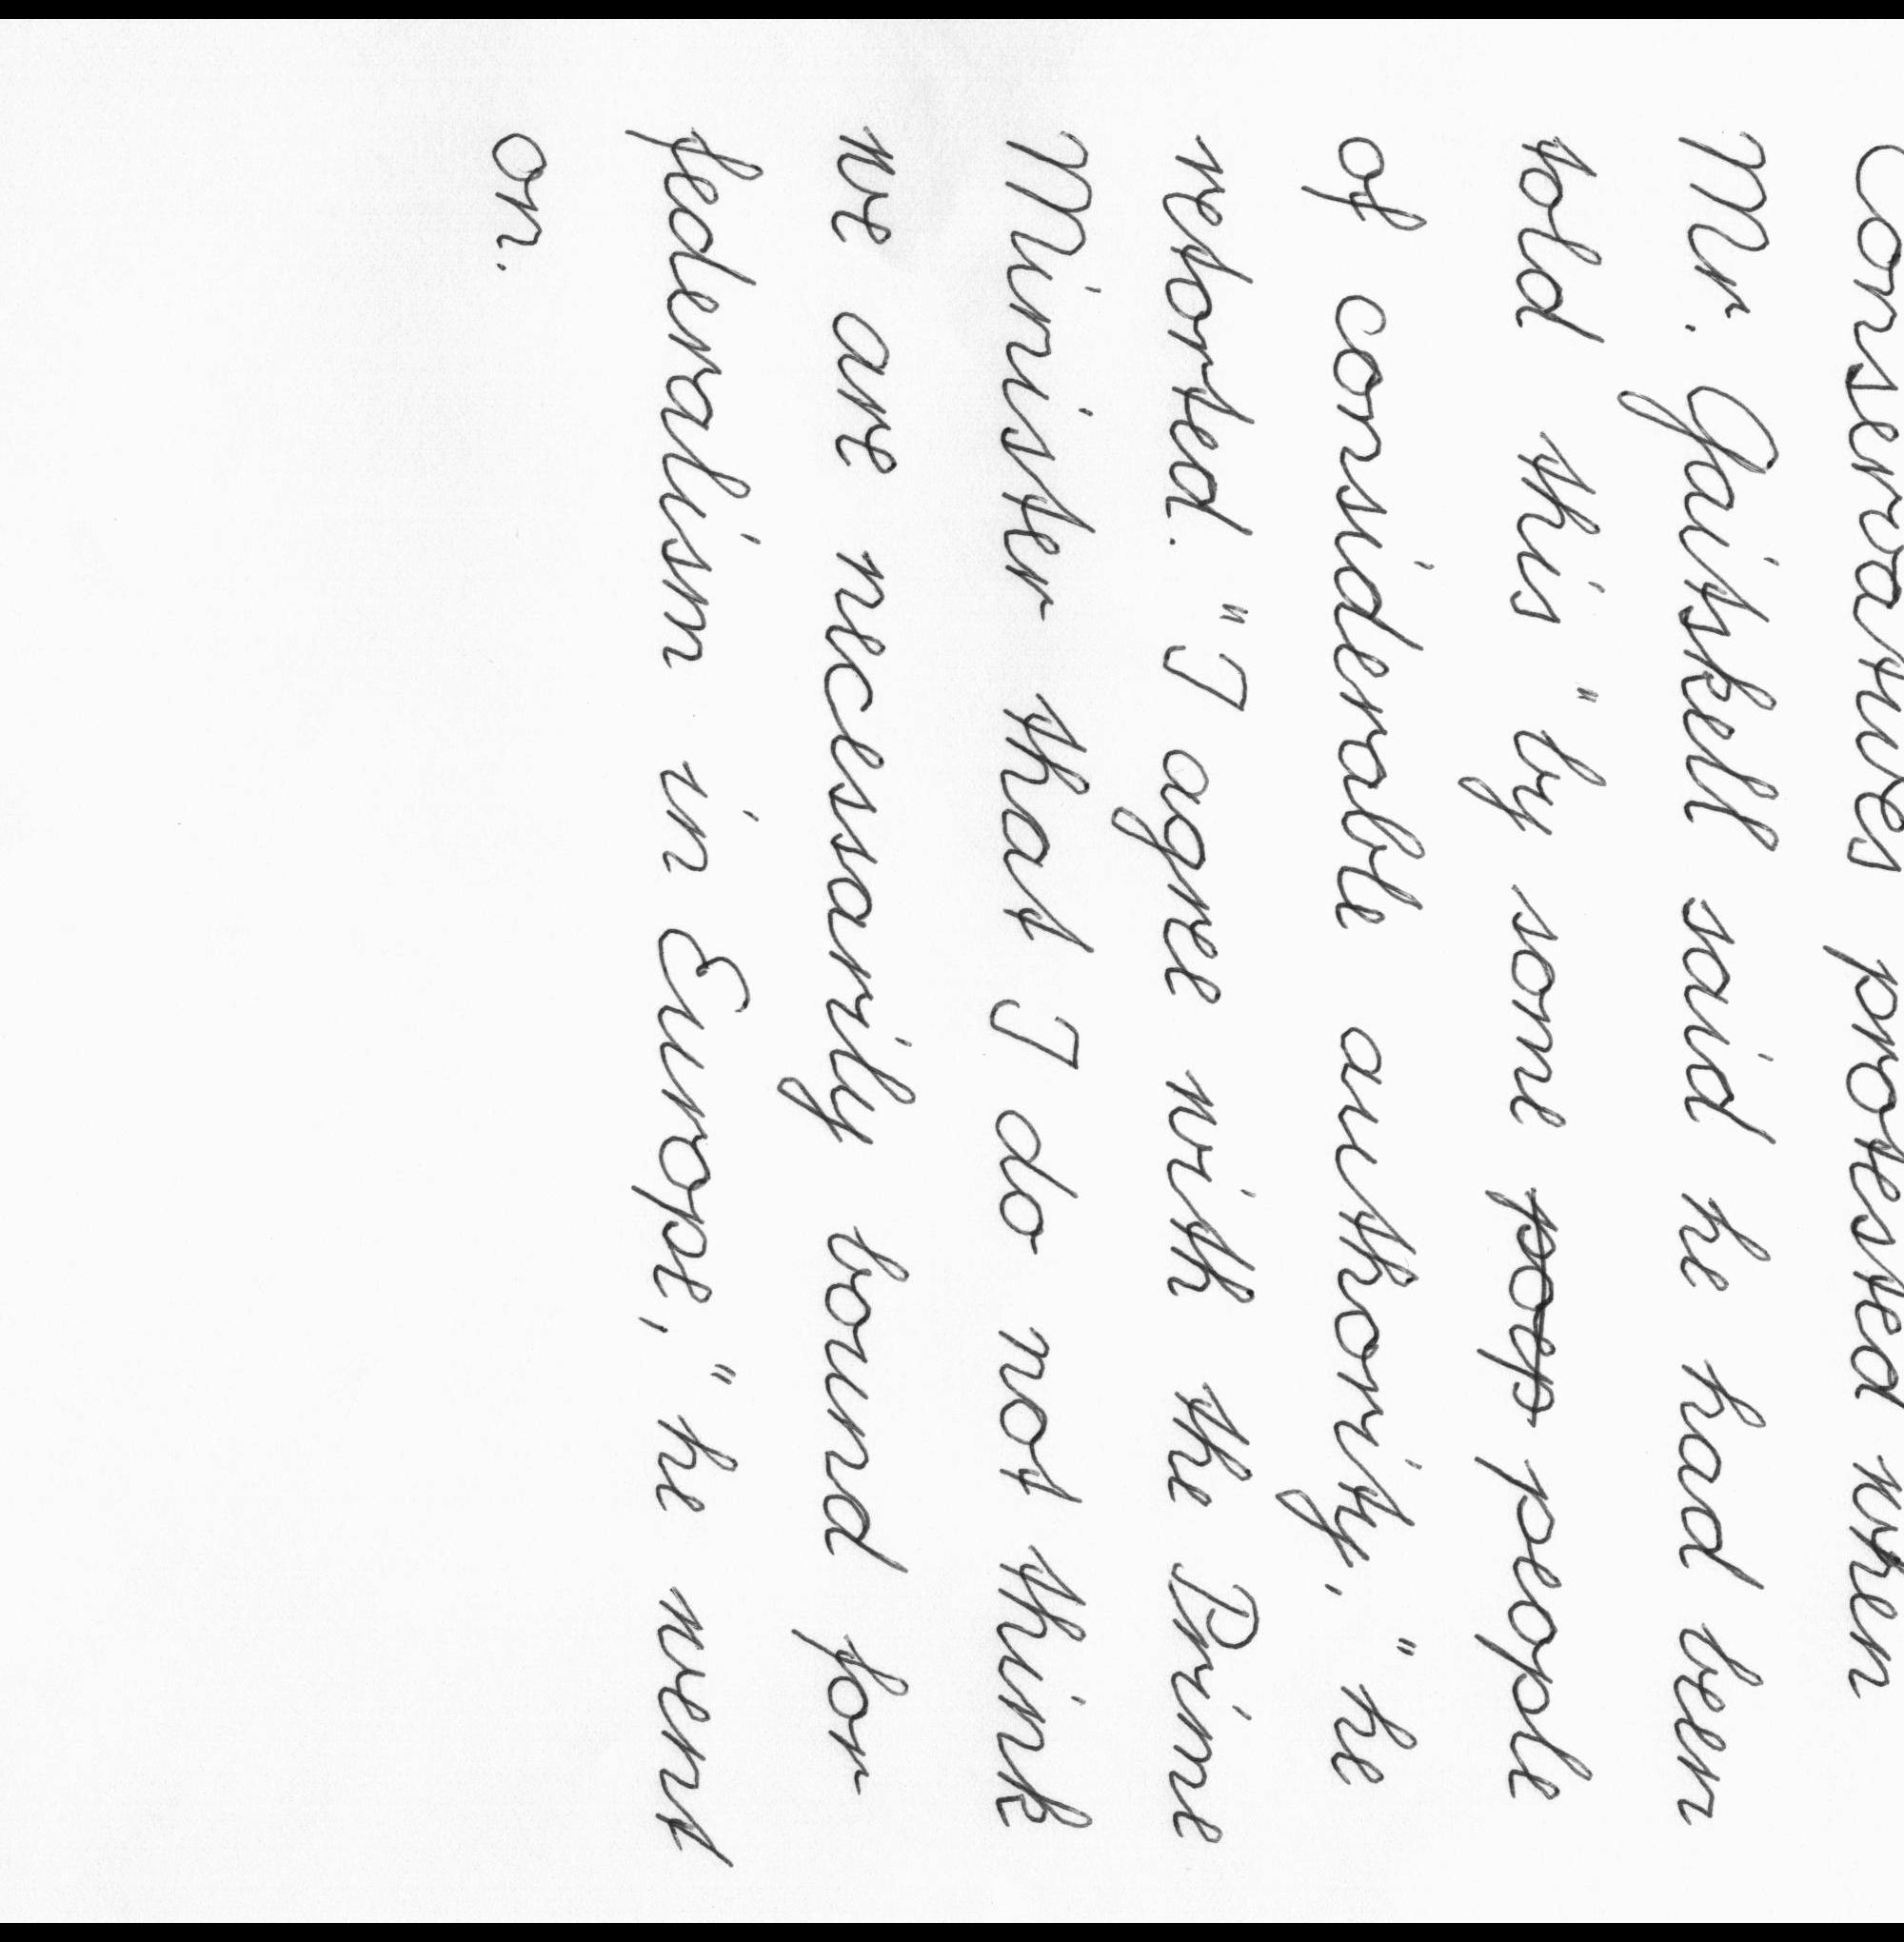 Conservatives protested when
Mr. Gaitskell said he had been
told this "by some people
of considerable authority," he
retorted. "I agree with the Prime
Minister that I do not think
we are necessarily bound for
federalism in Europe," he went
on.